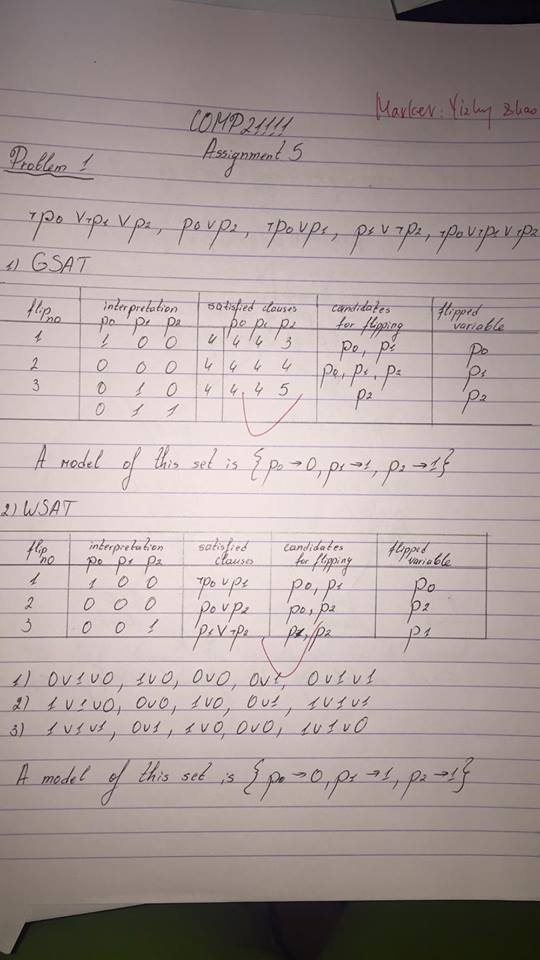 Marker: Yizhy Zhao
COMP21111
Assignment 5
Problem 1
¬p0 ∨ ¬p1 ∨ p2, p0 ∨ p2, ¬p0 ∨ p1, p1 ∨ ¬p2, ¬p0 ∨ ¬p1 ∨ ¬p2
1) GSAT
flip no interpretation satisfied clauses candidates for flipping flipped variable
p0 p1 p2 p0 p1 p2
1 1 0 0 4 4 4 3 p0, p1 p0
2 0 0 0 4 4 4 4 p0, p1, p2 p1
3 0 1 0 4 4 4 5 p2 p2
0 1 1
A model of this set is {p0→0, p1→1, p2→1}
2) WSAT
flip no interpretation satisfied clauses candidates for flipping flipped variable
p0 p1 p2
1 1 0 0 ¬p0 ∨ p1 p0, p1 p0
2 0 0 0 p0 ∨ p2 p0, p2 p2
3 0 0 1 p1 ∨ ¬p2 p1, p2 p1
1) 0∨1∨0, 1∨0, 0∨0, 0∨1, 0∨1∨1
2) 1∨1∨0, 0∨0, 1∨0, 0∨1, 1∨1∨1
3) 1∨1∨1, 0∨1, 1∨0, 0∨0, 1∨1∨0
A model of this set is {p0→0, p1→1, p2→1}